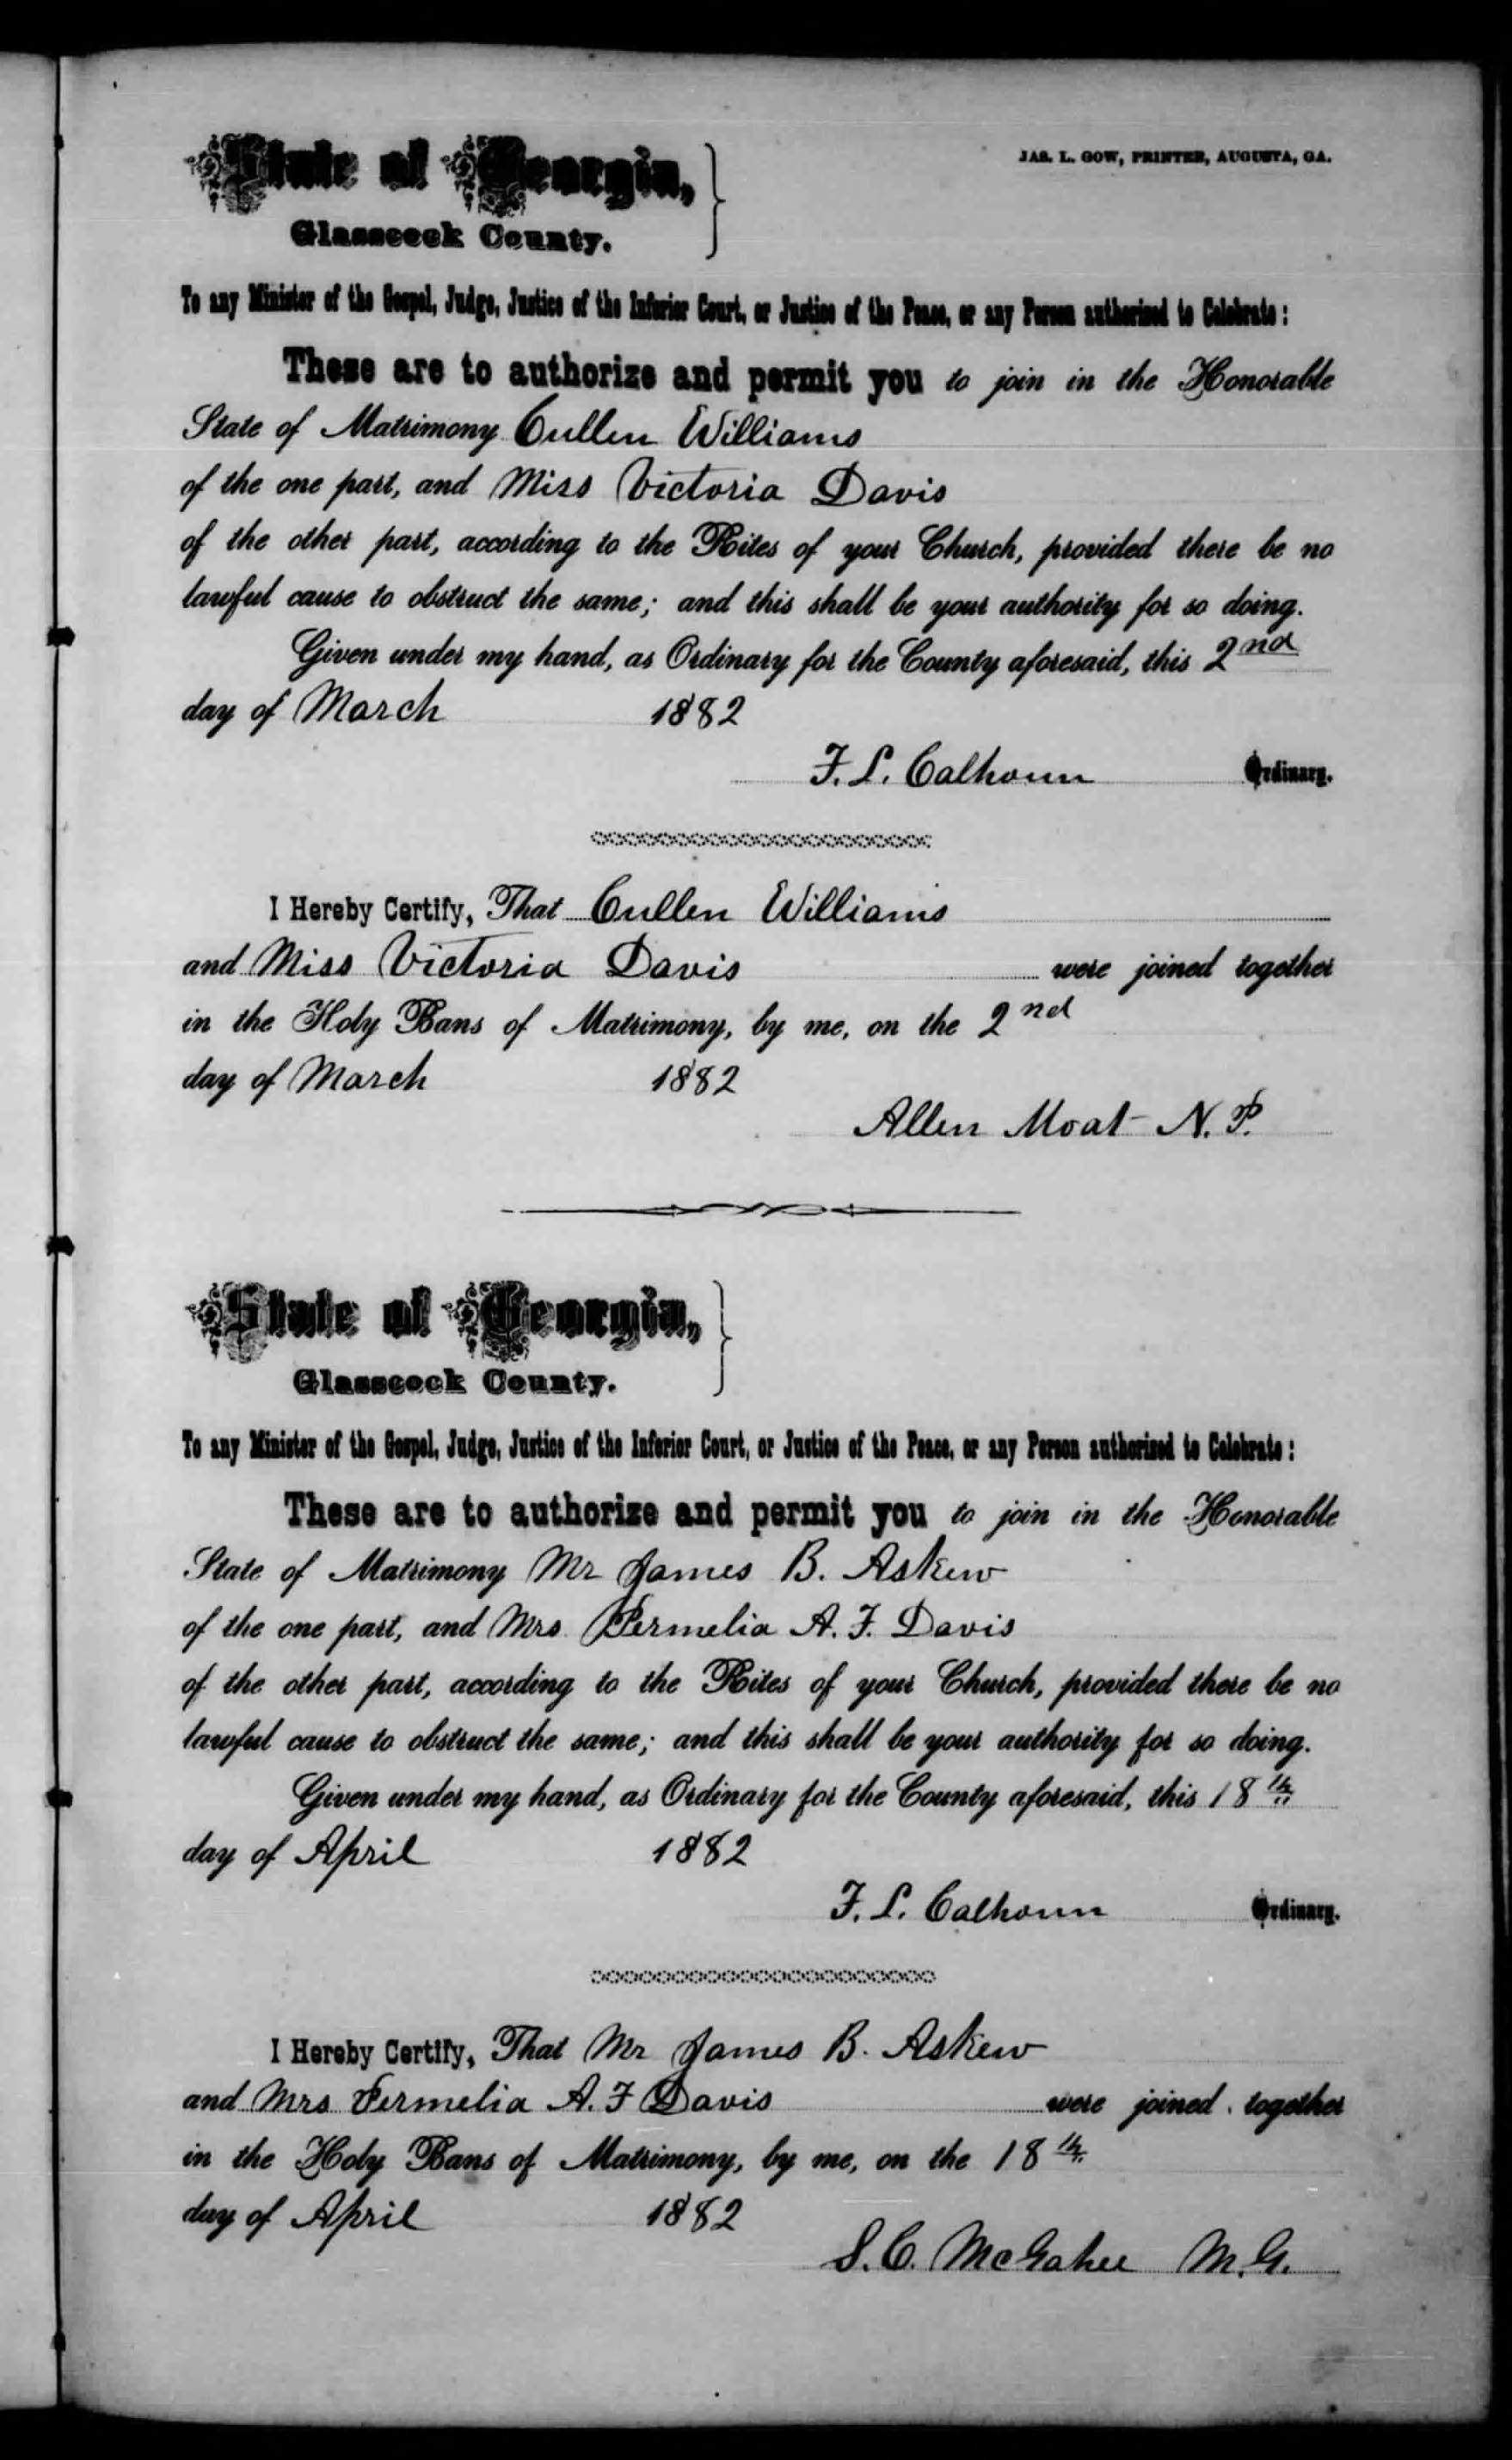 State of Georgia,
JAS. L. GOW, PRINTER, AUGUSTA, GA.
Glasscock County.
To any Minister of the Gospel, Judge, Justice of the Inferior Court, or Justice of the Peace, or any Person authorized to Celebrate:
These are to authorize and permit you to join in the Honorable
State of Matrimony Cullen Williams
of the one part, and Miss Victoria Davis
of the other part, according to the Rites of your Church, provided there be no
lawful cause to obstruct the same; and this shall be your authority for so doing.
Given under my hand, as Ordinary for the County aforesaid, this 2nd
day of March 1882
F. L. Calhoun Ordinary.
I Hereby Certify, That Cullen Williams
and Miss Victoria Davis were joined together
in the Holy Bans of Matrimony, by me, on the 2nd
day of March 1882
Allen Moat N. P.
State of Georgia,
Glasscock County.
To any Minister of the Gospel, Judge, Justice of the Inferior Court, or Justice of the Peace, or any Person authorized to Celebrate:
These are to authorize and permit you to join in the Honorable
State of Matrimony Mr James B. Askew
of the one part, and Mrs Permelia A. F. Davis
of the other part, according to the Rites of your Church, provided there be no
lawful cause to obstruct the same; and this shall be your authority for so doing.
Given under my hand, as Ordinary for the County aforesaid, this 18th
day of April 1882
F. L. Calhoun Ordinary.
I Hereby Certify, That Mr James B. Askew
and Mrs Permelia A. F Davis were joined together
in the Holy Bans of Matrimony, by me, on the 18th
day of April 1882
S. C. McGahee M. G.